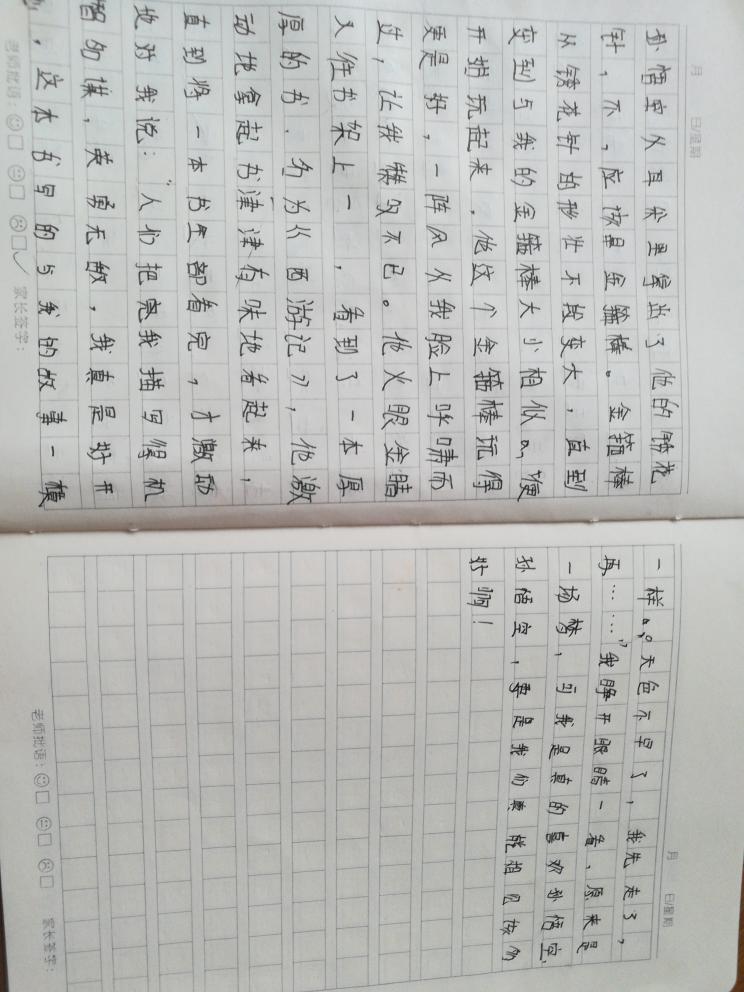 月 日/星期
孙悟空从耳朵里拿出了他的绣花
针，不，应该是金箍棒。金箍棒
从绣花针的形状不段变大，直到
变到与我的金箍棒大小相似。便
开始玩起来，他这个金箍棒玩得
更是好，一阵风从我脸上呼啸而
过，让我赞叹不已。他火眼金睛
入往书架上一，看到了一本厚
厚的书，名为《西游记》，他激
动地拿起书津津有味地看起来，
直到将一本书全部看完，才激动
地对我说：“人们把完我描写得机
智勾谋，英勇无敌，我真是好开
，这本书写的与我的故事一模
老师批语：☺□ 😐□ ☹□✓ 家长签字：
月 日/星期
一样。天色不早了，我先走了，
再……”我睁开眼睛一看，原来是
一场梦，可我是真的喜欢孙悟空，
孙悟空，要是我们真能相见该多
好啊！
老师批语：☺□ 😐□ ☹□ 家长签字：